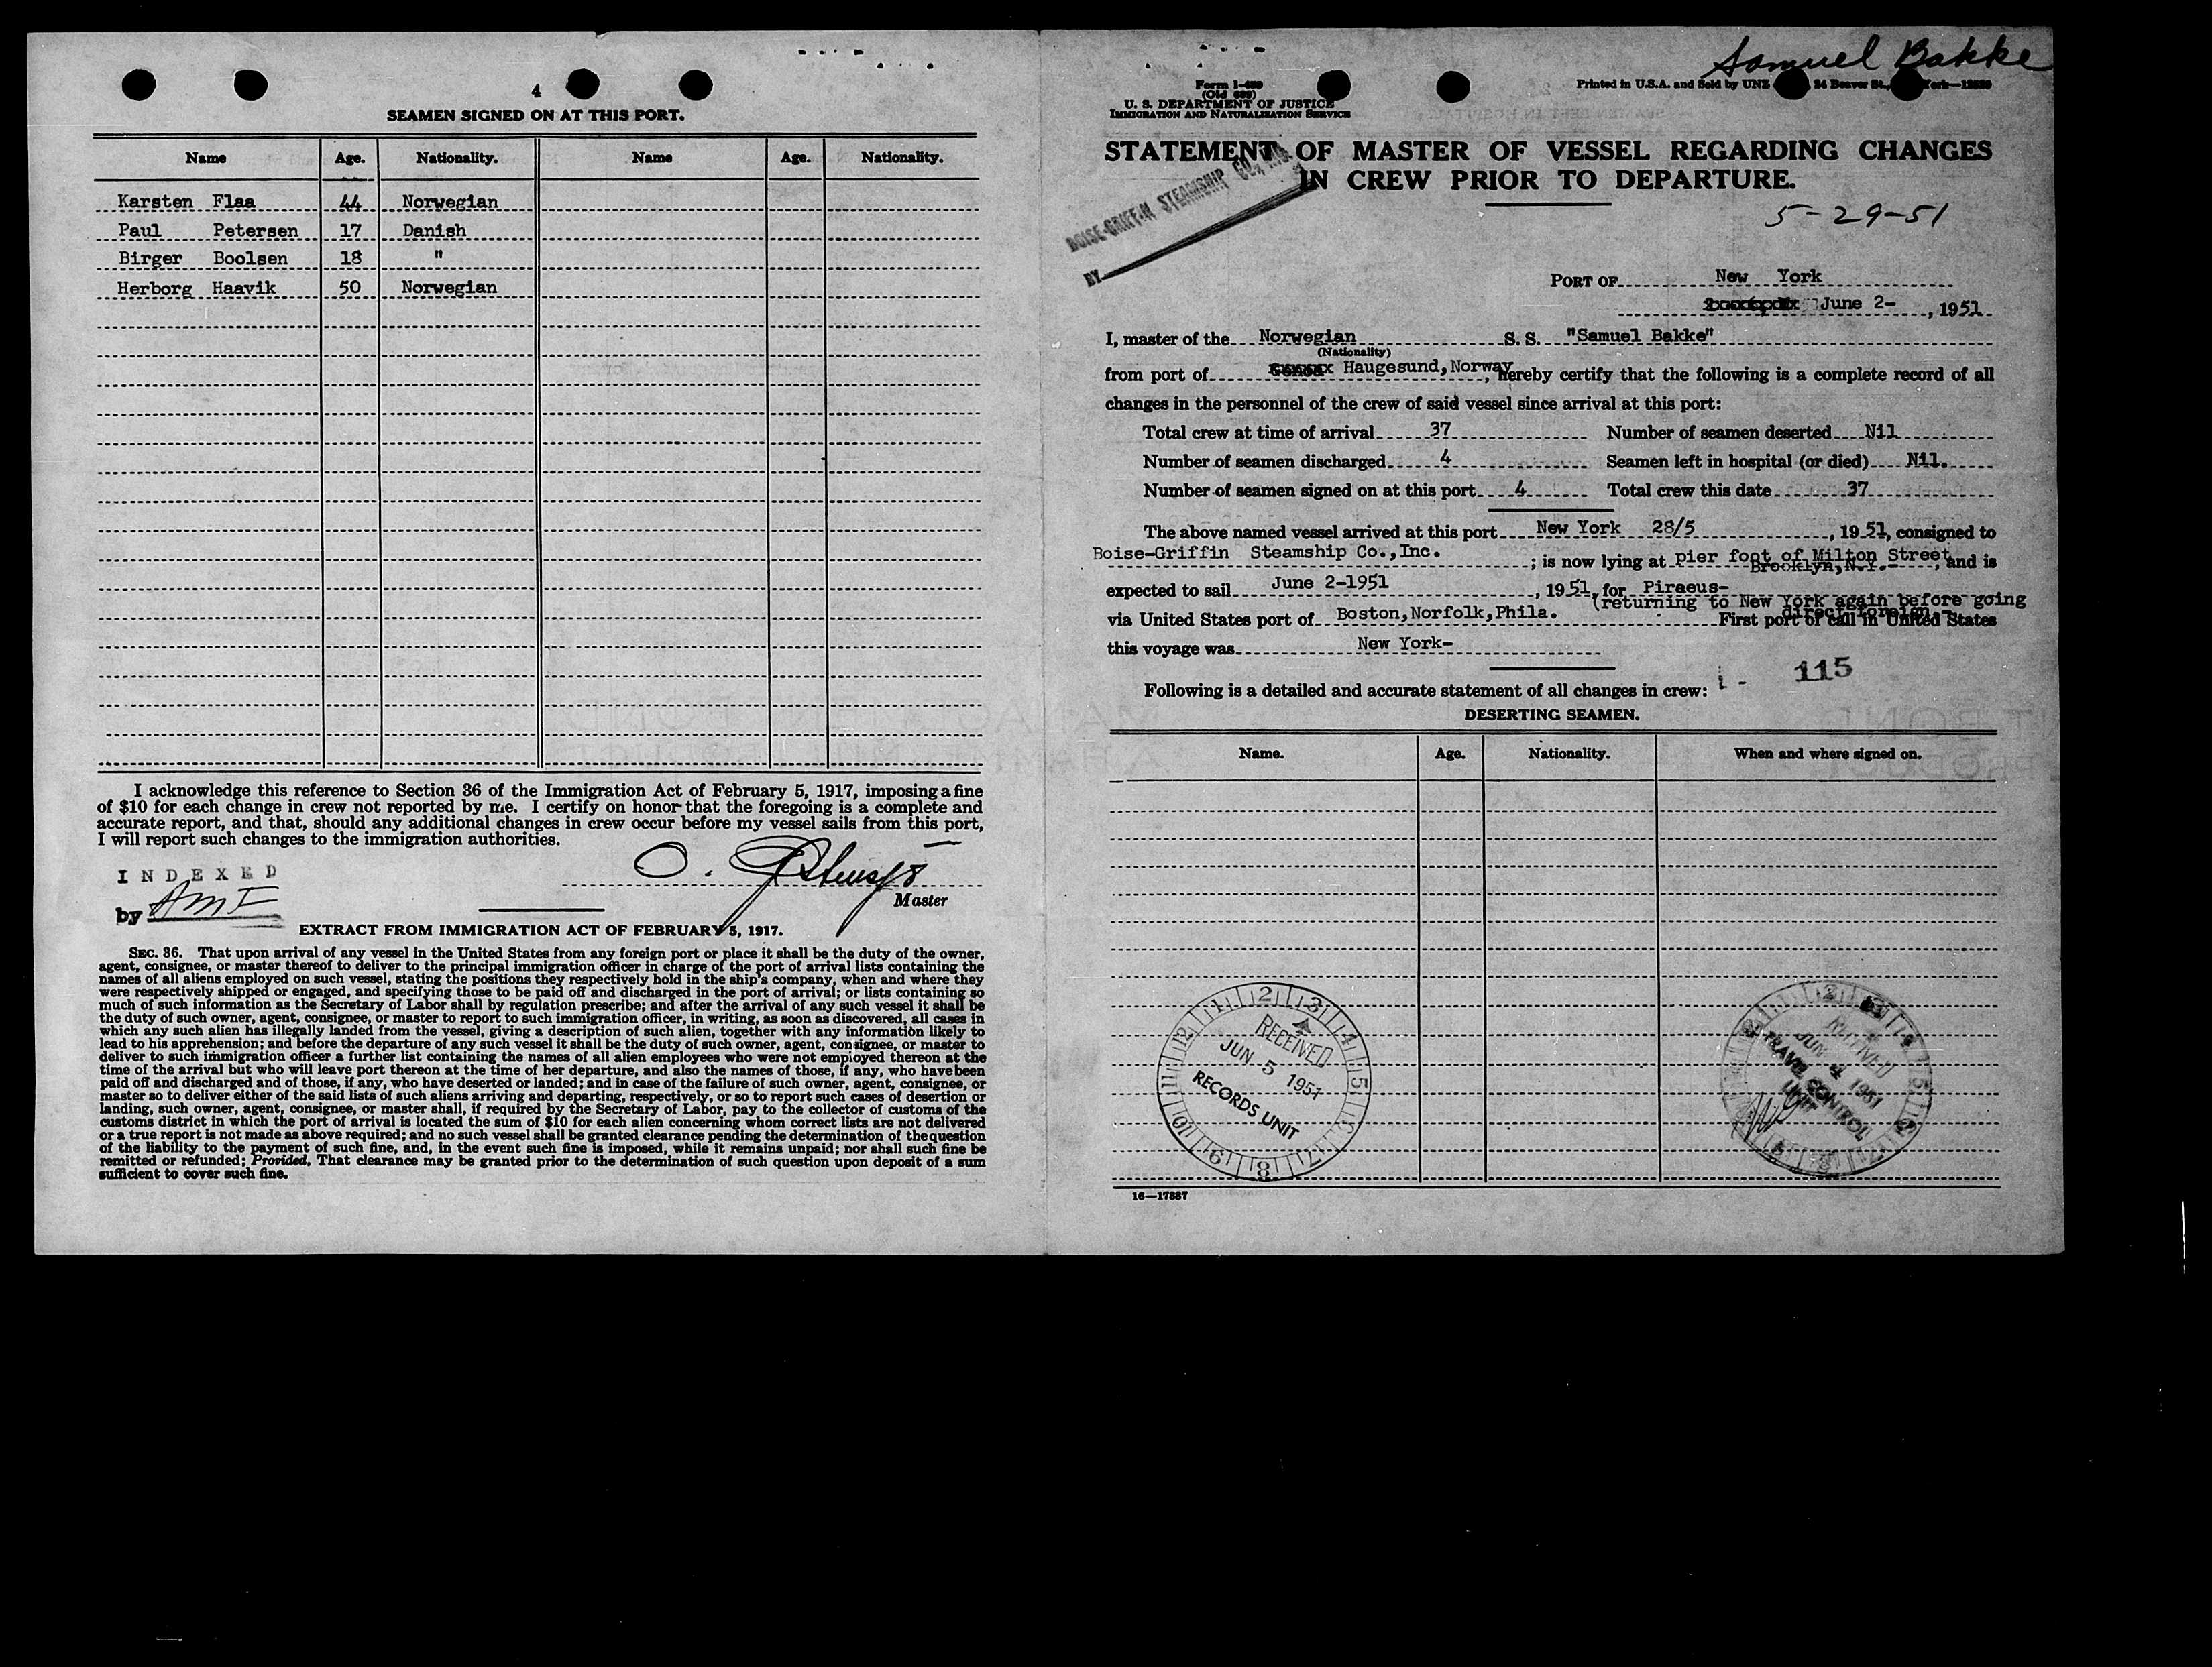 4
SEAMEN SIGNED ON AT THIS PORT.
Name Age. Nationality. Name Age. Nationality.
Karsten Flaa 44 Norwegian
Paul Petersen 17 Danish
Birger Boolsen 18 "
Herborg Haavik 50 Norwegian
I acknowledge this reference to Section 36 of the Immigration Act of February 5, 1917, imposing a fine
of $10 for each change in crew not reported by me. I certify on honor that the foregoing is a complete and
accurate report, and that, should any additional changes in crew occur before my vessel sails from this port,
I will report such changes to the immigration authorities.
INDEXED
by
O.
Master
EXTRACT FROM IMMIGRATION ACT OF FEBRUARY 5, 1917.
SEC. 36. That upon arrival of any vessel in the United States from any foreign port or place it shall be the duty of the owner,
agent, consignee, or master thereof to deliver to the principal immigration officer in charge of the port of arrival lists containing the
names of all aliens employed on such vessel, stating the positions they respectively hold in the ship's company, when and where they
were respectively shipped or engaged, and specifying those to be paid off and discharged in the port of arrival; or lists containing so
much of such information as the Secretary of Labor shall by regulation prescribe; and after the arrival of any such vessel it shall be
the duty of such owner, agent, consignee, or master to report to such immigration officer, in writing, as soon as discovered, all cases in
which any such alien has illegally landed from the vessel, giving a description of such alien, together with any information likely to
lead to his apprehension; and before the departure of any such vessel it shall be the duty of such owner, agent, consignee, or master to
deliver to such immigration officer a further list containing the names of all alien employees who were not employed thereon at the
time of the arrival but who will leave port thereon at the time of her departure, and also the names of those, if any, who have been
paid off and discharged and of those, if any, who have deserted or landed; and in case of the failure of such owner, agent, consignee, or
master so to deliver either of the said lists of such aliens arriving and departing, respectively, or so to report such cases of desertion or
landing, such owner, agent, consignee, or master shall, if required by the Secretary of Labor, pay to the collector of customs of the
customs district in which the port of arrival is located the sum of $10 for each alien concerning whom correct lists are not delivered
or a true report is not made as above required; and no such vessel shall be granted clearance pending the determination of the question
of the liability to the payment of such fine, and, in the event such fine is imposed, while it remains unpaid; nor shall such fine be
remitted or refunded; Provided, That clearance may be granted prior to the determination of such question upon deposit of a sum
sufficient to cover such fine.
Samuel Bakke
Form I-489
(Old 689)
U. S. DEPARTMENT OF JUSTICE
IMMIGRATION AND NATURALIZATION SERVICE
Printed in U.S.A. and Sold by UNZ 24 Beaver St.,
STATEMENT OF MASTER OF VESSEL REGARDING CHANGES
IN CREW PRIOR TO DEPARTURE.
BOISE-GRIFFIN STEAMSHIP CO., INC.
BY
5-29-51
PORT OF New York
June 2- , 1951
I, master of the Norwegian S. S. "Samuel Bakke"
(Nationality)
from port of Haugesund, Norway, hereby certify that the following is a complete record of all
changes in the personnel of the crew of said vessel since arrival at this port:
Total crew at time of arrival 37 Number of seamen deserted Nil
Number of seamen discharged 4 Seamen left in hospital (or died) Nil.
Number of seamen signed on at this port 4 Total crew this date 37
The above named vessel arrived at this port New York 28/5 , 1951, consigned to
Boise-Griffin Steamship Co.,Inc. ; is now lying at pier foot of Milton Street, and is
Brooklyn,N.Y.-
expected to sail June 2-1951 , 1951, for Piraeus-
(returning to New York again before going
direct foreign.-
via United States port of Boston,Norfolk,Phila. First port of call in United States
this voyage was New York-
Following is a detailed and accurate statement of all changes in crew: 115
DESERTING SEAMEN.
Name. Age. Nationality. When and where signed on.
RECEIVED
JUN 5 1951
RECORDS UNIT
RECEIVED
JUN 4 1951
TRAVEL CONTROL
UNIT
16—17887